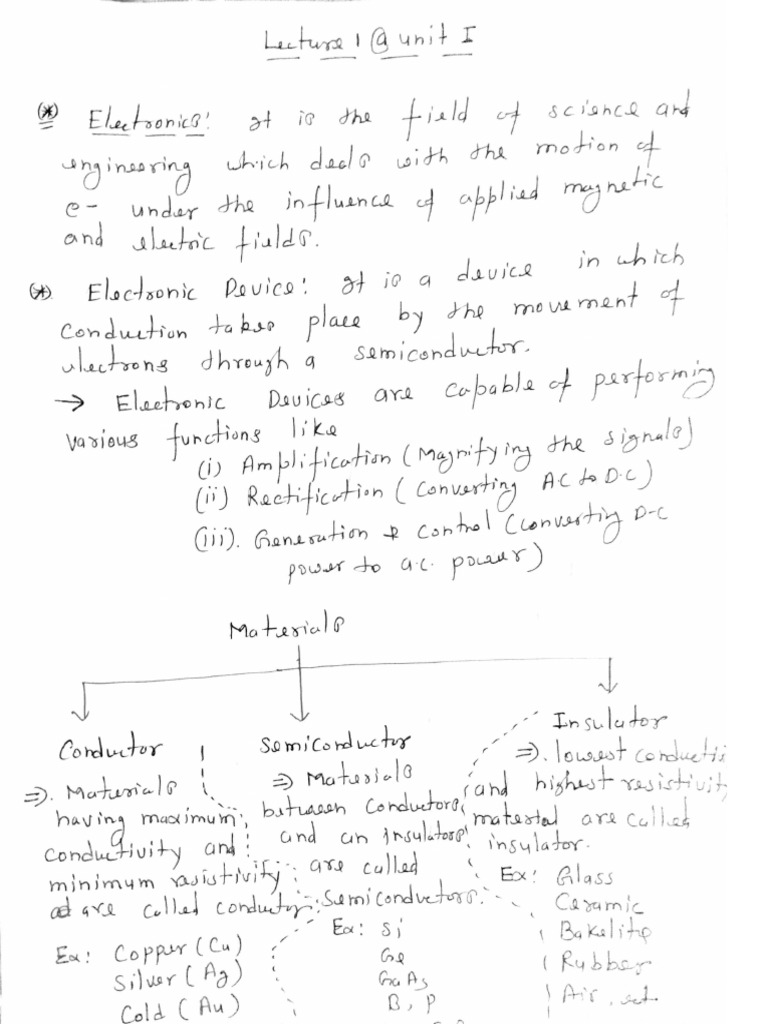 Lecture 1 @ unit I
(*) Electronics: It is the field of science and
engineering which deals with the motion of
e- under the influence of applied magnetic
and electric fields.
(*). Electronic Device: It is a device in which
conduction takes place by the movement of
electrons through a semiconductor.
→ Electronic Devices are capable of performing
various functions like
(i) Amplification (Magnifying the signals)
(ii) Rectification (Converting A.C to D.C)
(iii). Generation & Control (Converting D-C
power to a.c. power)
Materials
Conductor
⇒). Materials
having maximum
conductivity and
minimum resistivity
are called conductor.
Ex: Copper (Cu)
Silver (Ag)
Cold (Au)
Semiconductor
⇒) Materials
between Conductors
and an insulators
are called
Semiconductors.
Ex: Si
Ge
GaAs
B, P
Insulator
⇒). lowest conducti
and highest resistivity
material are called
insulator.
Ex: Glass
Ceramic
Bakelite
Rubber
Air, ect.